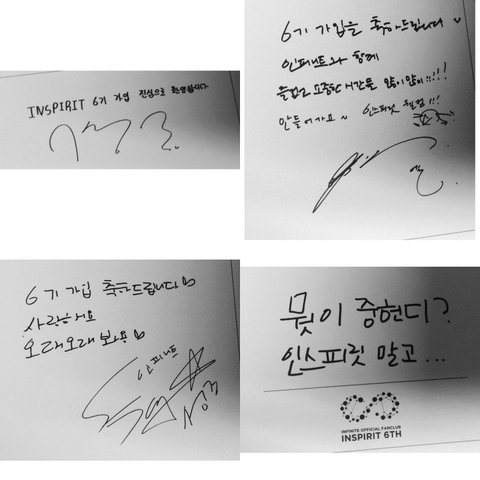 INSPIRIT 6기 가입 진심으로 환영합니다
6기 가입을 축하드립니다
인피니트와 함께
즐겁고 소중한 시간을 많이많이!!!!
만들어가요~ 인스피릿 !!!
6기 가입 축하드립니다♡
사랑해요
오래오래 봐용♡
인피니트
뭣이 중헌디?
인스피릿 말고...
INFINITE OFFICIAL FANCLUB
INSPIRIT 6TH